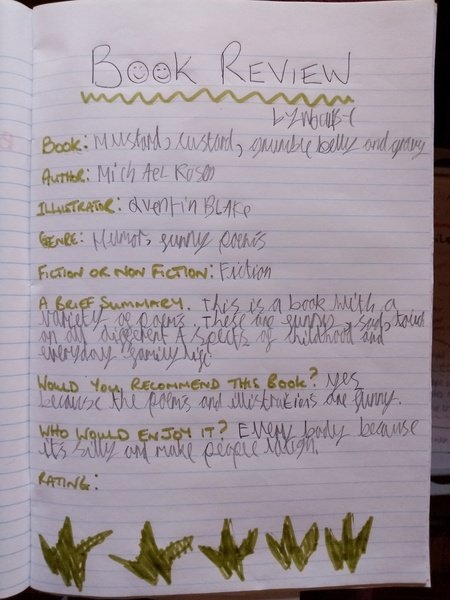 BOOK REVIEW
BOOK: Mustard, custard, grumble belly and gravy
AUTHOR: MichAel Rosen
ILLUSTRATOR: Quentin BLAke
GENRE: Humor, funny poems
FICTION OR NON FICTION: Fiction
A BRIEF SUMMARY. This is a book with a
variety of poems. These are funny, sad, touch
on all different Aspects of childhood and
everyday family life.
WOULD YOU RECOMMEND THIS BOOK? yes
because the poems and illustrations are funny.
WHO WOULD ENJOY IT? Every body because
it's silly and make people laugh.
RATING: